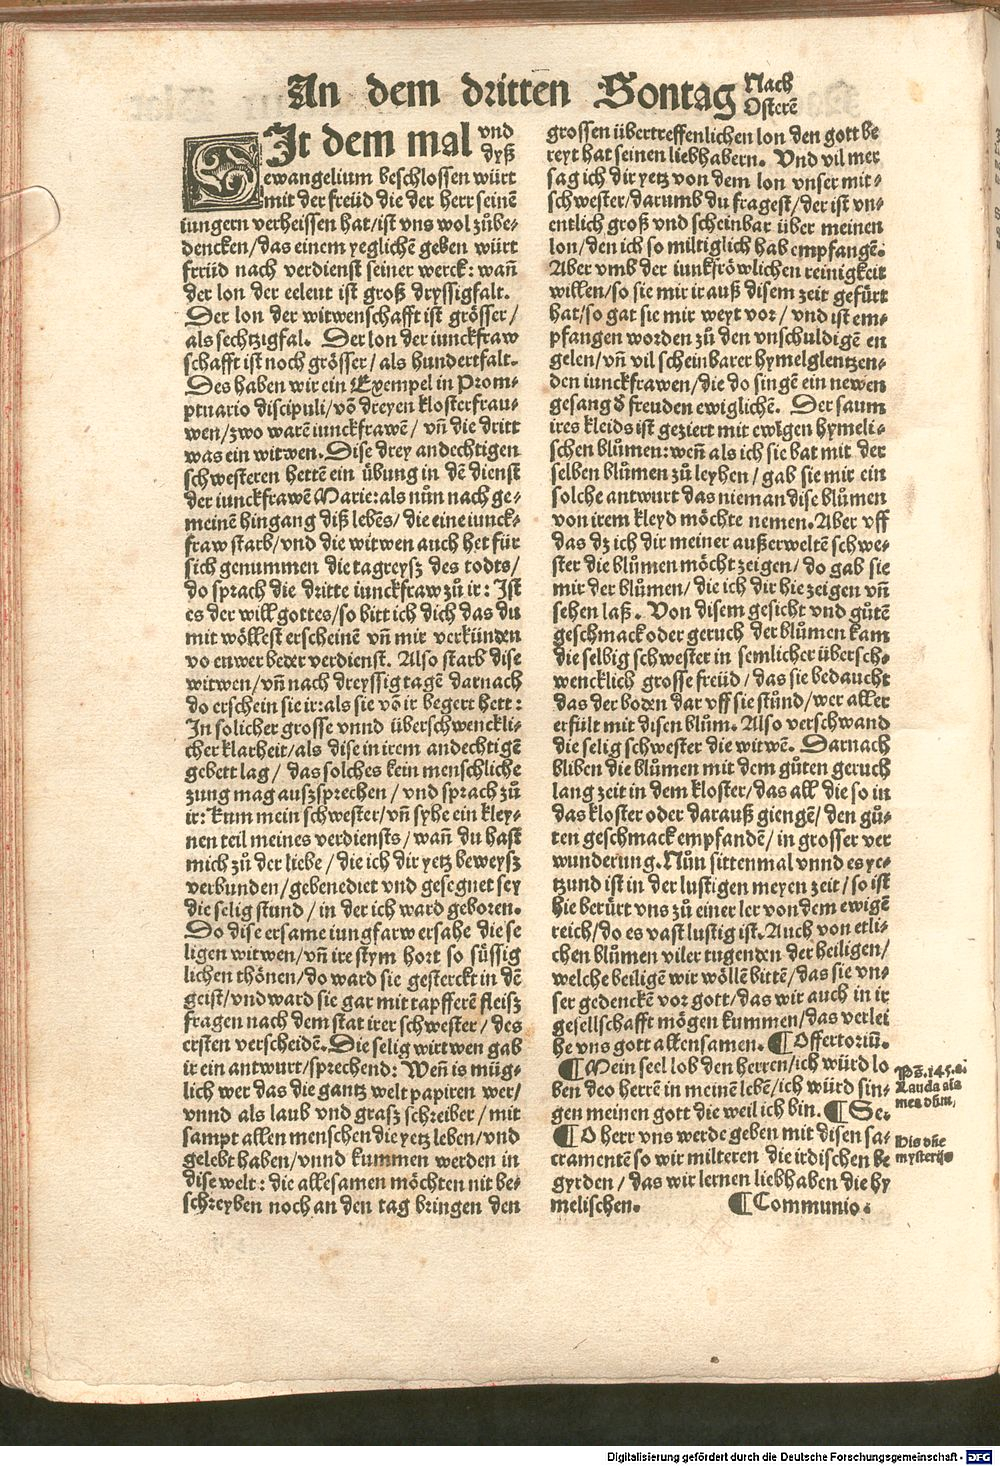 An dem dritten Sontag Nach
Osterē
SIt dem mal vnd
dyß
ewangelium beschlossen würt
mit der freüd die der herr seinē
iungern verheissen hat/ist vns wol zůbe-
dencken/das einem yeglichē geben würt
frrüd nach verdienst seiner werck: wañ
der lon der eeleut ist groß dryssigfalt.
Der lon der witwenschafft ist grösser/
als sechtzigfal. Der lon der iunckfraw
schafft ist noch grösser/als hundertfalt.
Des haben wir ein Exempel in Prom-
ptuario discipuli/võ dreyen klosterfrau-
wen/zwo warē iunckfrawē/ vñ die dritt
was ein witwen. Dise drey andechtigen
schwesteren hettē ein übung in dē dienst
der iunckfrawē Marie: als nůn nach ge-
meinē hingang diß lebēs/die eine iunck-
fraw starb/vnd die witwen auch het für
sich genummen die tagreysz des todts/
do sprach die dritte iunckfraw zů ir: Ist
es der will gottes/so bitt ich dich das du
mit wöllest erscheinē vñ mir verkünden
vo enwer beder verdienst. Also starb dise
witwen/vñ nach dreyssig tagē darnach
do erschein sie ir: als sie võ ir begert hett:
In solicher grosse vnnd überschwenckli-
cher klarheit/als dise in irem andechtigē
gebett lag/ das solches kein menschliche
zung mag auszsprechen/ vnd sprach zů
ir: Kum mein schwester/vñ syhe ein kley-
nen teil meines verdiensts/ wañ du hast
mich zů der liebe/die ich dir yetz beweysz
verbunden/gebenediet vnd gesegnet sey
die selig stund/in der ich ward geboren.
Do dise ersame iungfarw ersahe die se
ligen witwen/vñ ire stym hort so süssig
lichen thönen/do ward sie gesterckt in dē
geist/vnd ward sie gar mit tapfferē fleisz
fragen nach dem stat irer schwester/des
ersten verscheidē. Die selig wirtwen gab
ir ein antwurt/sprechend: Weñ is müg-
lich wer das die gantz welt papiren wer/
vnnd als laub vnd grasz schreiber/mit
sampt allen menschen die yetz leben/vnd
gelebt haben/vnnd kummen werden in
dise welt: die alle samen möchten nit be-
schreyben noch an den tag bringen den
grossen übertreffenlichen lon den gott be
reyt hat seinen liebhabern. Vnd vil mer
sag ich dir yetz von dem lon vnser mit-
schwester/darumb du fragest/der ist vn-
entlich groß vnd scheinbar über meinen
lon/den ich so miltiglich hab empfangē.
Aber vmb der iunkfröwlichen reinigkeit
willen/so sie mir ir auß disem zeit gefürt
hat/so gat sie mir weyt vor/ vnd ist em-
pfangen worden zů den vnschuldigē en
gelen/vñ vil scheinbarer hymelglentzen-
den iunckfrawen/die do singē ein newen
gesang ð freuden ewigliche. Der saum
ires kleids ist geziert mit ewigen hymeli-
schen blůmen: weñ als ich sie bat mit der
selben blůmen zů leyhen/gab sie mir ein
solche antwurt das nieman dise blůmen
von irem kleyd möchte nemen. Aber vff
das dz ich dir meiner außerweltē schwe-
ster die blůmen möcht zeigen/do gab sie
mir der blůmen/die ich dir hie zeigen vñ
sehen laß. Von disem gesicht vnd gůtē
geschmack oder geruch der blůmen kam
die selbig schwester in semlicher übersch-
wencklich grosse freüd/das sie bedaucht
das der boden dar vff sie stůnd/wer aller
erfült mit disen blům. Also verschwand
die selig schwester die witwē. Darnach
bliben die blůmen mit dem gůten geruch
lang zeit in dem kloster/das all die so in
das kloster oder darauß giengē/den gů-
ten geschmack empfandē/in grosser ver
wunderung. Nůn sittenmal vnnd es ye-
tzund ist in der lustigen meyen zeit/so ist
hie berürt vns zů einer ler von dem ewigē
reich/do es vast lustig ist. Auch von etli-
chen blůmen viler tugenden der heiligen/
welche heiligen wir wöllē bittē/das sie vn-
ser gedenckē vor gott/das wir auch in ir
gesellschafft mögen kummen/das verlei
he vns gott allensamen. ¶Offertoriũ.
¶Mein seel lob den herren/ich würd lo
ben deo herrē in meinē lebē/ich würd sin-
gen meinen gott die weil ich bin. ¶Se.
¶O herr vns werde geben mit disen sa-
cramentē so wir milteren die irdischen be
gyrden/das wir lernen liebhaben die hy
melischen. ¶Communio.
Ps̄. 145. a.
Lauda aīa
mea dñm,
His dñe
mysterijs
Digitalisierung gefördert durch die Deutsche Forschungsgemeinschaft - DFG